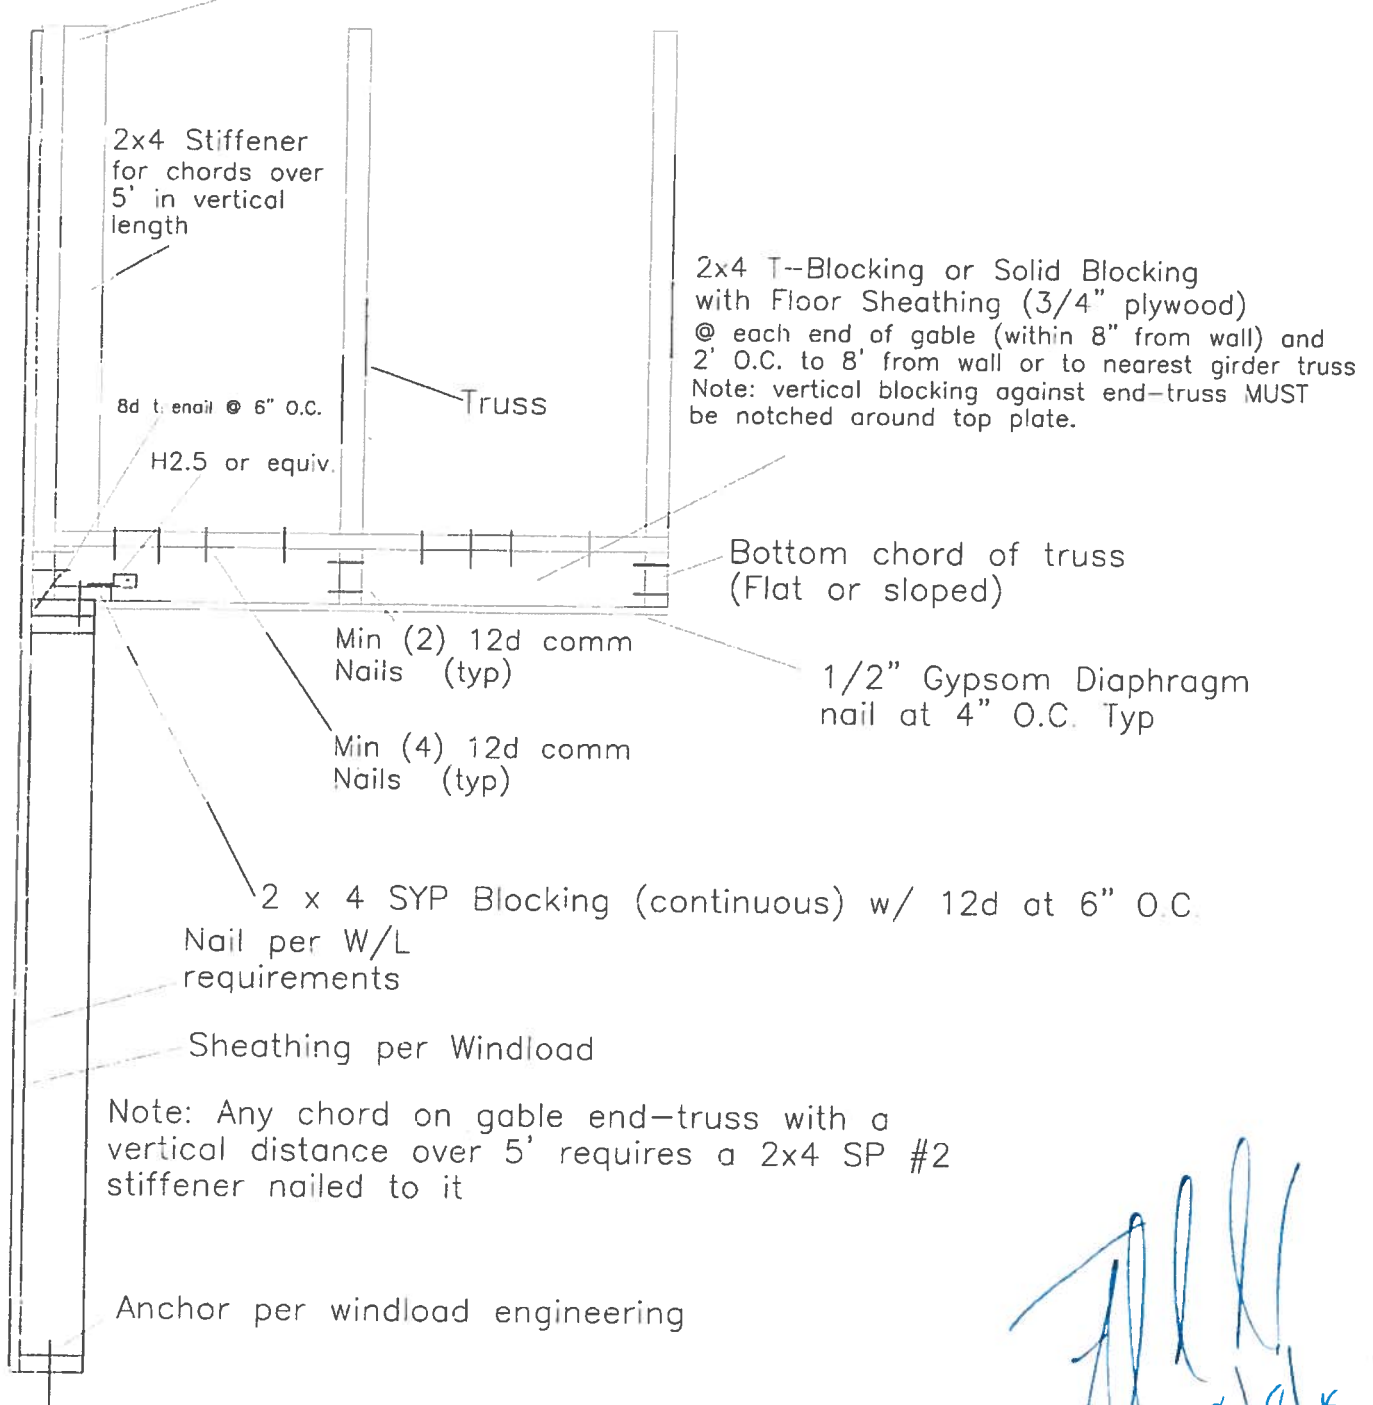 2x4 Stiffener
for chords over
5' in vertical
length
2x4 T--Blocking or Solid Blocking
with Floor Sheathing (3/4" plywood)
@ each end of gable (within 8" from wall) and
2' O.C. to 8' from wall or to nearest girder truss
Note: vertical blocking against end-truss MUST
be notched around top plate.
Truss
8d t enail @ 6" O.C.
H2.5 or equiv.
Bottom chord of truss
(Flat or sloped)
Min (2) 12d comm
Nails (typ)
1/2" Gypsom Diaphragm
nail at 4" O.C. Typ
Min (4) 12d comm
Nails (typ)
2 x 4 SYP Blocking (continuous) w/ 12d at 6" O.C.
Nail per W/L
requirements
Sheathing per Windload
Note: Any chord on gable end-truss with a
vertical distance over 5' requires a 2x4 SP #2
stiffener nailed to it
Anchor per windload engineering